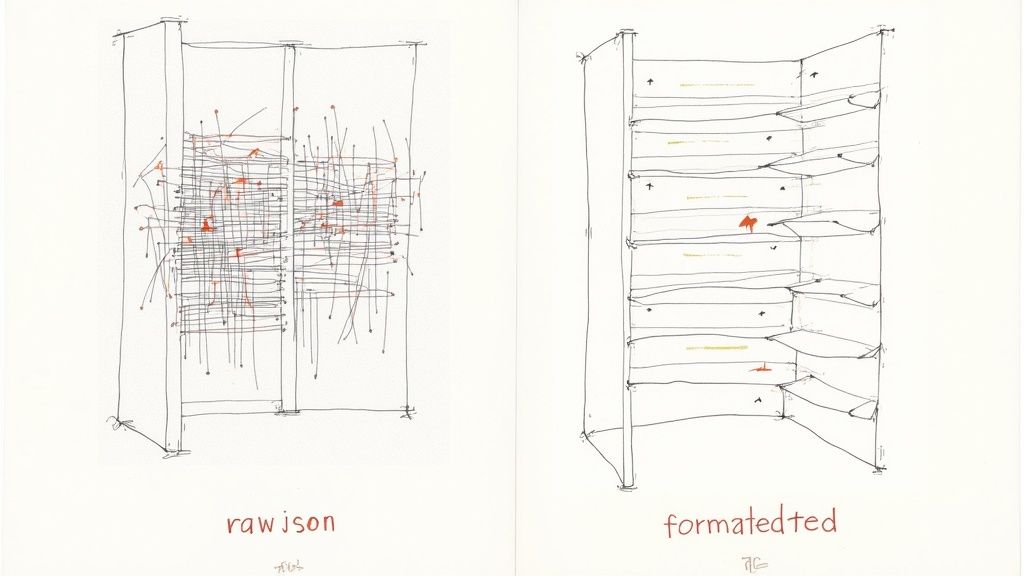 rawjson
formatedted